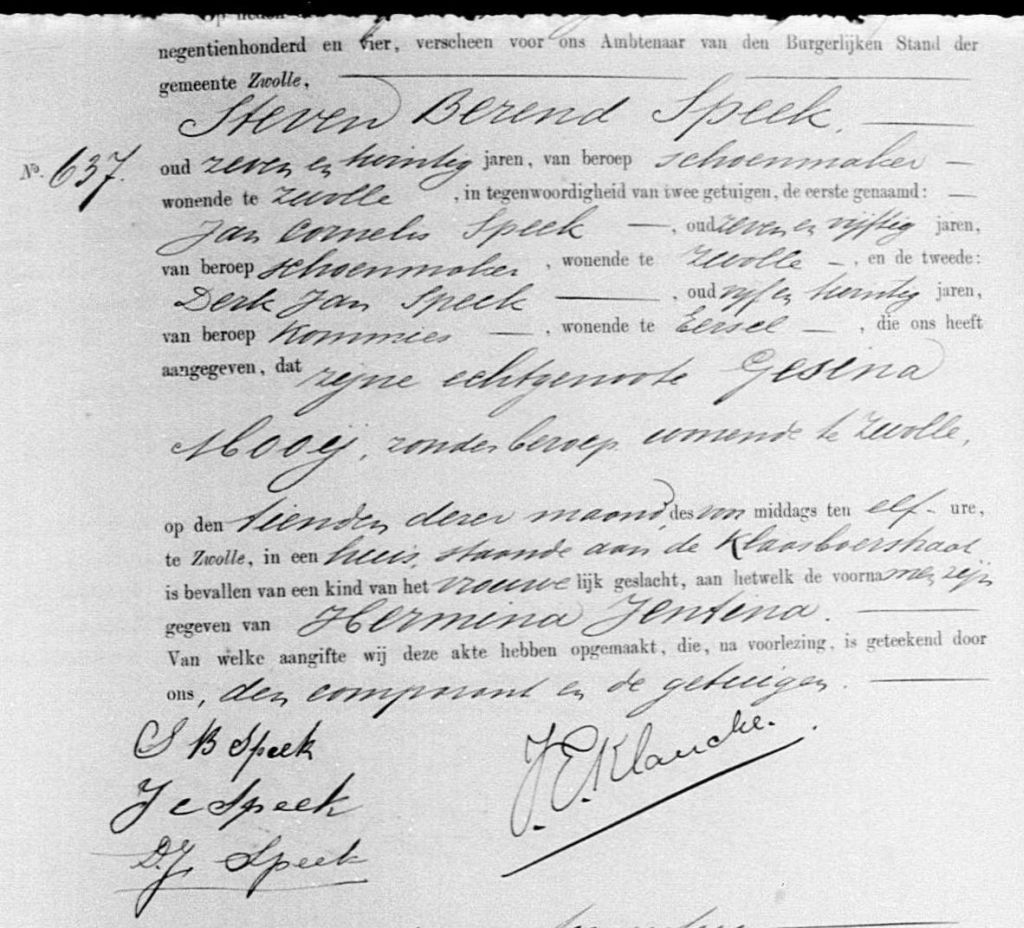 Op heden
negentienhonderd en vier, verscheen voor ons Ambtenaar van den Burgerlijken Stand der
gemeente Zwolle,
Steven Berend Speek.
No. 637. oud zeven en twintig jaren, van beroep schoenmaker
wonende te Zwolle, in tegenwoordigheid van twee getuigen, de eerste genaamd:
Jan Cornelis Speek, oud zeven en vijftig jaren,
van beroep schoenmaker, wonende te Zwolle, en de tweede:
Derk Jan Speek, oud vyf en twintig jaren,
van beroep Kommies, wonende te Eersel, die ons heeft
aangegeven, dat zijne echtgenoote Gesina
Mooij, zonder beroep wonende te Zwolle,
op den tienden dezer maand, des voormiddags ten elf ure,
te Zwolle, in een huis, staande aan de Klaasboerstraat
is bevallen van een kind van het vrouwelijk geslacht, aan hetwelk de voornamen zijn
gegeven van Hermina Jentina.
Van welke aangifte wij deze akte hebben opgemaakt, die, na voorlezing, is geteekend door
ons, den comparant en de getuigen.
S B Speek
J C Speek
D. J. Speek